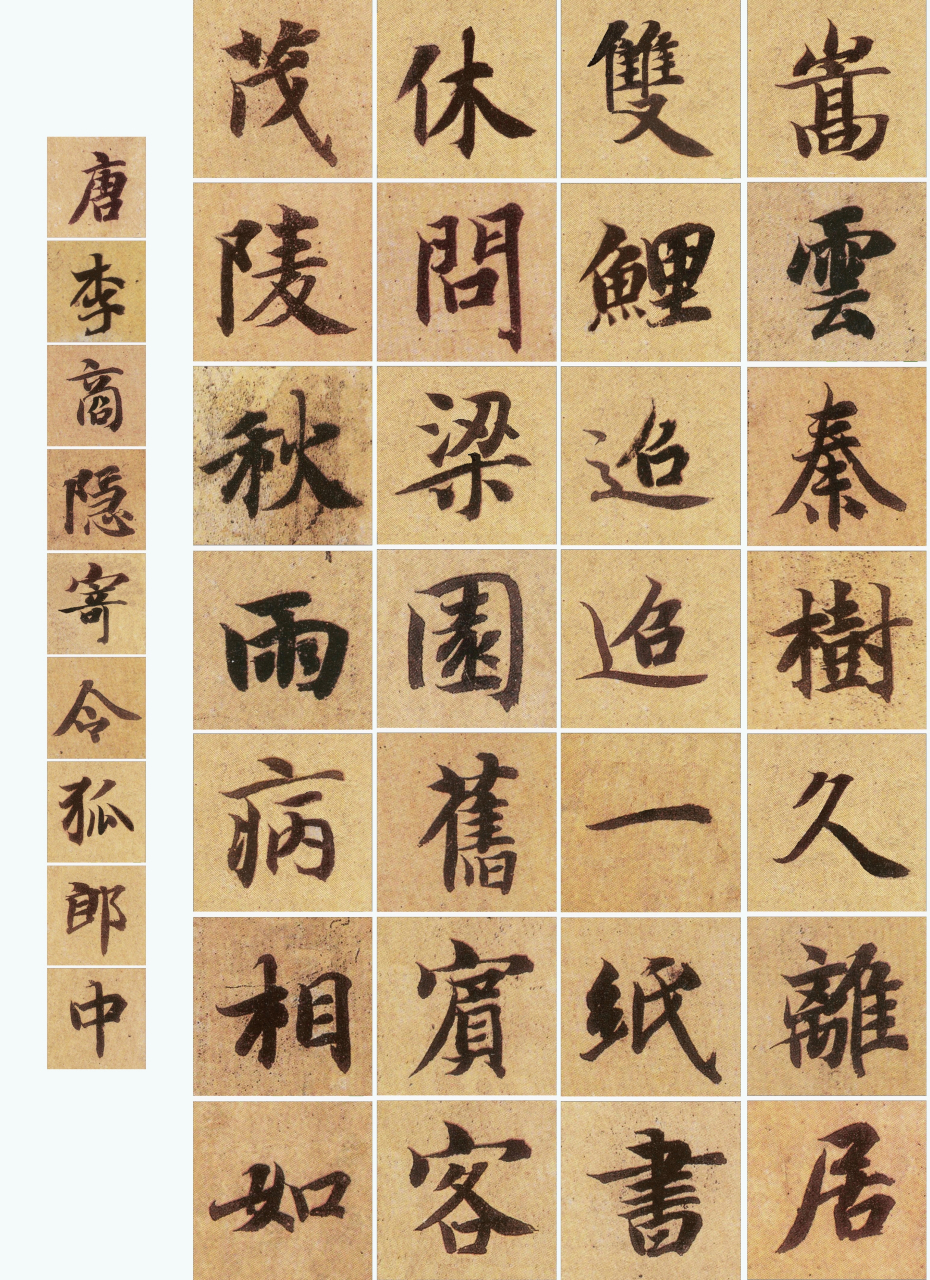 嵩雲秦樹久離居
雙鯉迢迢一紙書
休問梁園舊賓客
茂陵秋雨病相如
唐李商隐寄令狐郎中